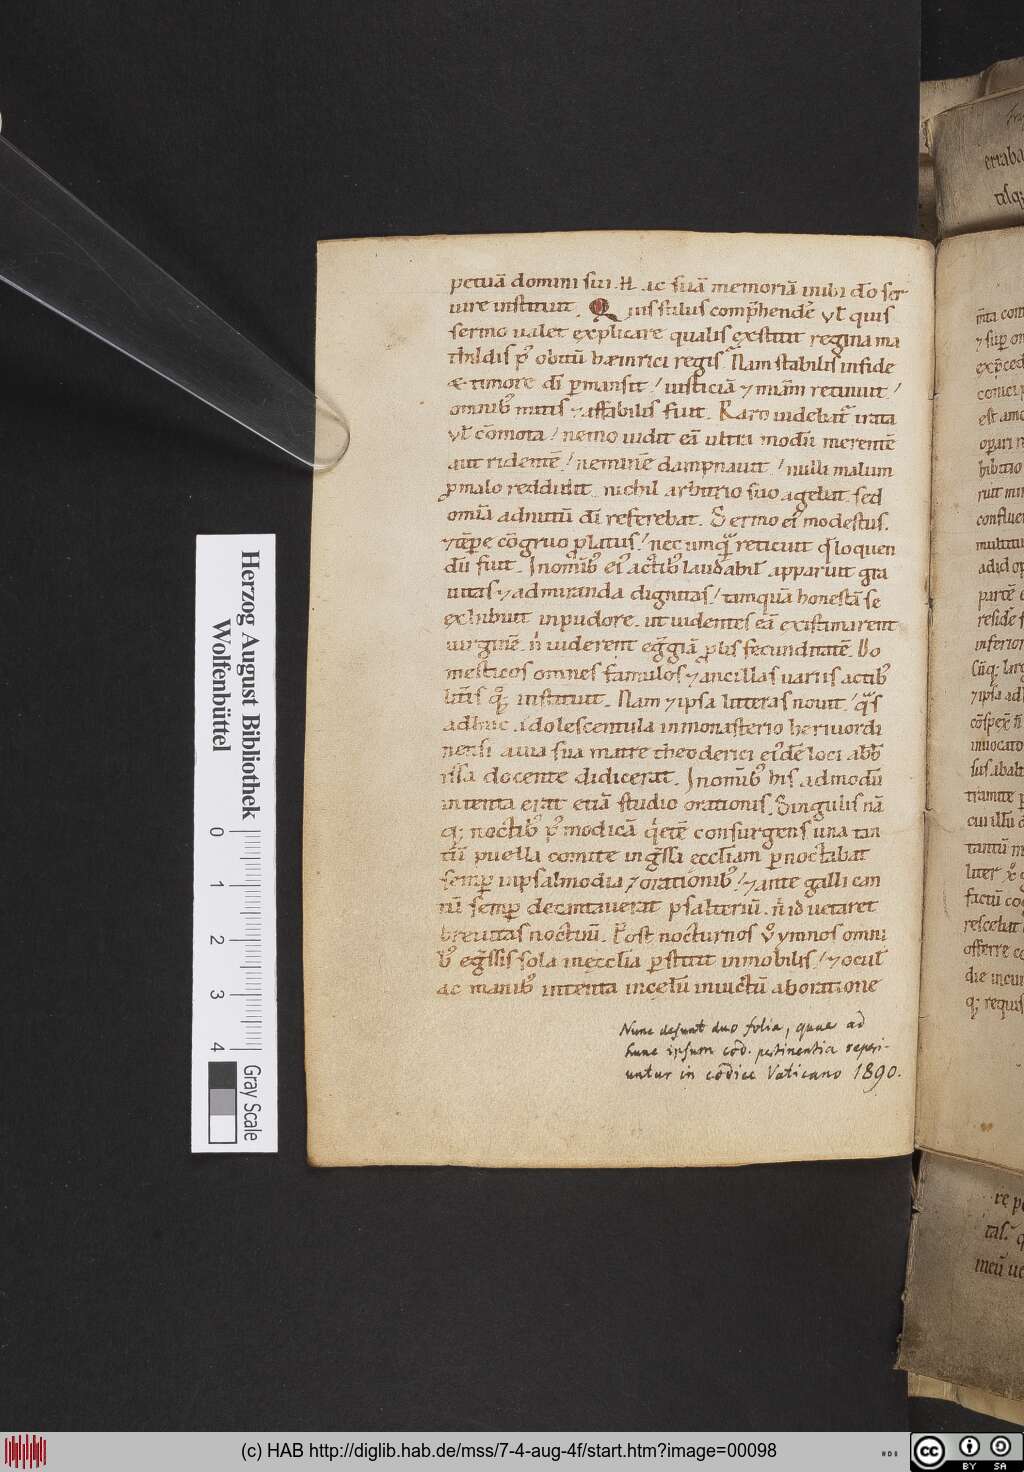 petuā domini sui. H ac suā memoriā uubi dō ser
uire instituit. Quis stilus comp̄hendē vl̄ quis
sermo ualet explicare qualis ęxstitit regina ma
thildis p̄ obitū hæinrici regis. Nam stabilis in fide
& timore dī p̄mansit / iusticiā ⁊ miām retinuit /
omnibꝰ mitis ⁊ affabilis fuit. Raro uidebat̄ irata
vl̄ cōmota / nemo uidit eā ultra modū merentē
aut ridentē / neminē dampnauit / nulli malum
p̄ malo reddidit. nichil arbitrio suo agebat. sed
omīa ad nutū dī referebat. Sermo eiꝰ modestus.
⁊ tēpe cōgruo platus / nec umq̄ reticuit qd̄ loquen
dū fuit. In omībꝰ eiꝰ actibꝰ laudabil̄ apparuit gra
uitas ⁊ admiranda dignitas / tamquā honestā se
exhibuit in pudore. ut uidentes eā existimarent
uirginē. n̄ uiderent egḡiā plis fecunditatē. Do
mesticos omnes famulos ⁊ ancillas uariis actibꝰ
litt̄is q; instituit. Nam ⁊ ipsa litteras nouit / q̄s
adhuc adolescentula in monasterio heriuordi
nensi auia sua matre theoderici eiꝰdē loci abb̄
issa docente didicerat. In omībꝰ his admodū
intenta erat etiā studio orationis. Singulis nā
q; noctibꝰ p̄ modicā q̇etē consurgens una tan
tū puella comite ing̃ssa eccłiam p̄noctabat
semp̄ in psalmodia ⁊ orationibꝰ / ⁊ ante galli can
tū semp̄ decantauerat psalteriū. n̄ id uetaret
breuitas noctiū. Post nocturnos v̊ ymnos omni
bꝰ eg̃ssis sola in ęccłia p̄stitit inmobilis / ⁊ ocul̄
ac manibꝰ intenta in celū inuictū ab oratione
Nunc desunt duo folia, quae ad
hunc ipsum cod. pertinentia reperi-
untur in codice Vaticano 1890.
Herzog August Bibliothek
Wolfenbüttel
0 1 2 3 4
Gray Scale
erraba
tisq;
m̄ta con
⁊ sup̄ om
excęd
est am
opari
hibitio
ruit
conflue
multitu
adid op
partē
residē
inferior
⁊ ipsa ad
inuocato
sus abał
tramite
cui illū
tantū
liter
factū
rescebat
offerre
die incur
q; requis
re p
tas. q
meū ue
(c) HAB http://diglib.hab.de/mss/7-4-aug-4f/start.htm?image=00098
HAB
cc BY SA